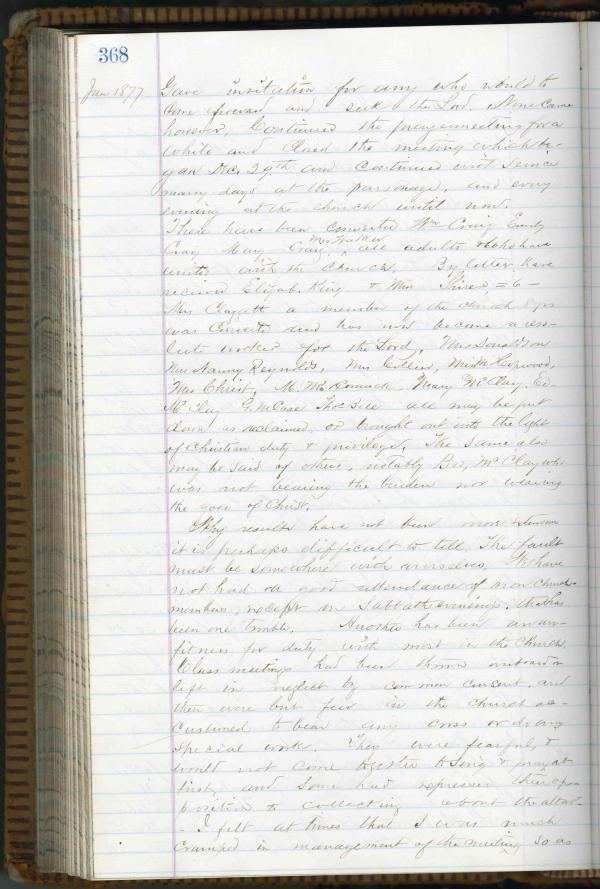 368
Jan 1877 Gave invitation for any who would to
come forward and seek the Lord. None came
however. Continued the prayermeeting for a
while and closed the meeting which be-
gan Dec, 29th and continued with service
many days at the parsonage, and every
evening at the church until now.
There have been converted Wm Craig Emily
Craig Mary Craig, Mrs Walker all adults & who have
united with the Church. By letter have
recieved Elizab. King & Mrs = 6 –
Mrs Clagett a member of the church 8 yrs
was and has now become a reso-
lute worker for the Lord, Mrs Donaldson
Mrs Nanny Reynolds, Mrs
Mrs Christ, M. Mary McClay, Ed.
McClay G. McCase Thos Bell all may be put
down as reclaimed, or brought out into the light
of Christian duty & privilege, The same also
may be said of others, notably Bro, McClay who
was not bearing the burden nor wearing
the yoke of Christ.
Why results have not been more extensive
it is perhaps difficult to tell. The fault
must be somewhere with ourselves. We have
not had a good attendance of non church
members, except on Sabbath evenings. That has
been one trouble. Another has been an un-
fitness for duty with most in the church.
Class meetings had been thrown overboard or
left in neglect by common consent, and
there were but few in the church ac-
customed to bear any cross or doing
special work. They were fearful, &
would not come together to sing & pray at
first, and some had expressed their op-
position to collecting about the altar
– I felt at times that I was much
cramped in management of the meeting so as